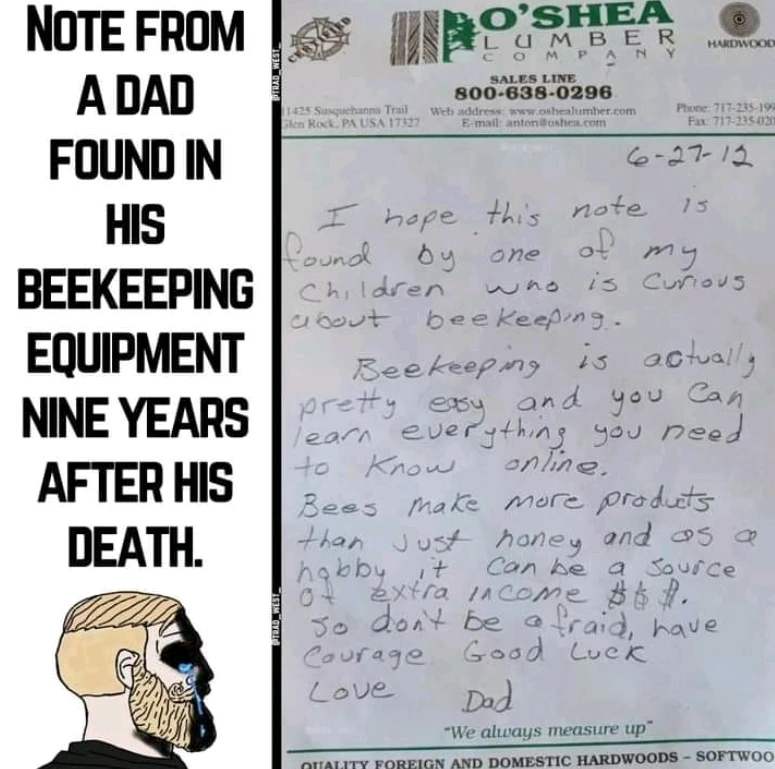 NOTE FROM
A DAD
FOUND IN
HIS
BEEKEEPING
EQUIPMENT
NINE YEARS
AFTER HIS
DEATH.
@TRAD_WEST_
@TRAD_WEST_
CERTIFIED
O'SHEA
LUMBER
COMPANY
HARDWOOD
SALES LINE
800-638-0296
11425 Susquehanna Trail
Glen Rock, PA USA 17327
Web address: www.oshealumber.com
E-mail: anton@oshea.com
Phone: 717-235-199
Fax: 717-235-020
6-27-12
I hope this note is
found by one of my
children who is curious
about beekeeping.
Beekeeping is actually
pretty easy and you can
learn everything you need
to know online.
Bees make more products
than just honey and as a
hobby it can be a source
of extra income $$$.
So don't be afraid, have
courage. Good Luck
Love Dad
"We always measure up"
QUALITY FOREIGN AND DOMESTIC HARDWOODS – SOFTWOO